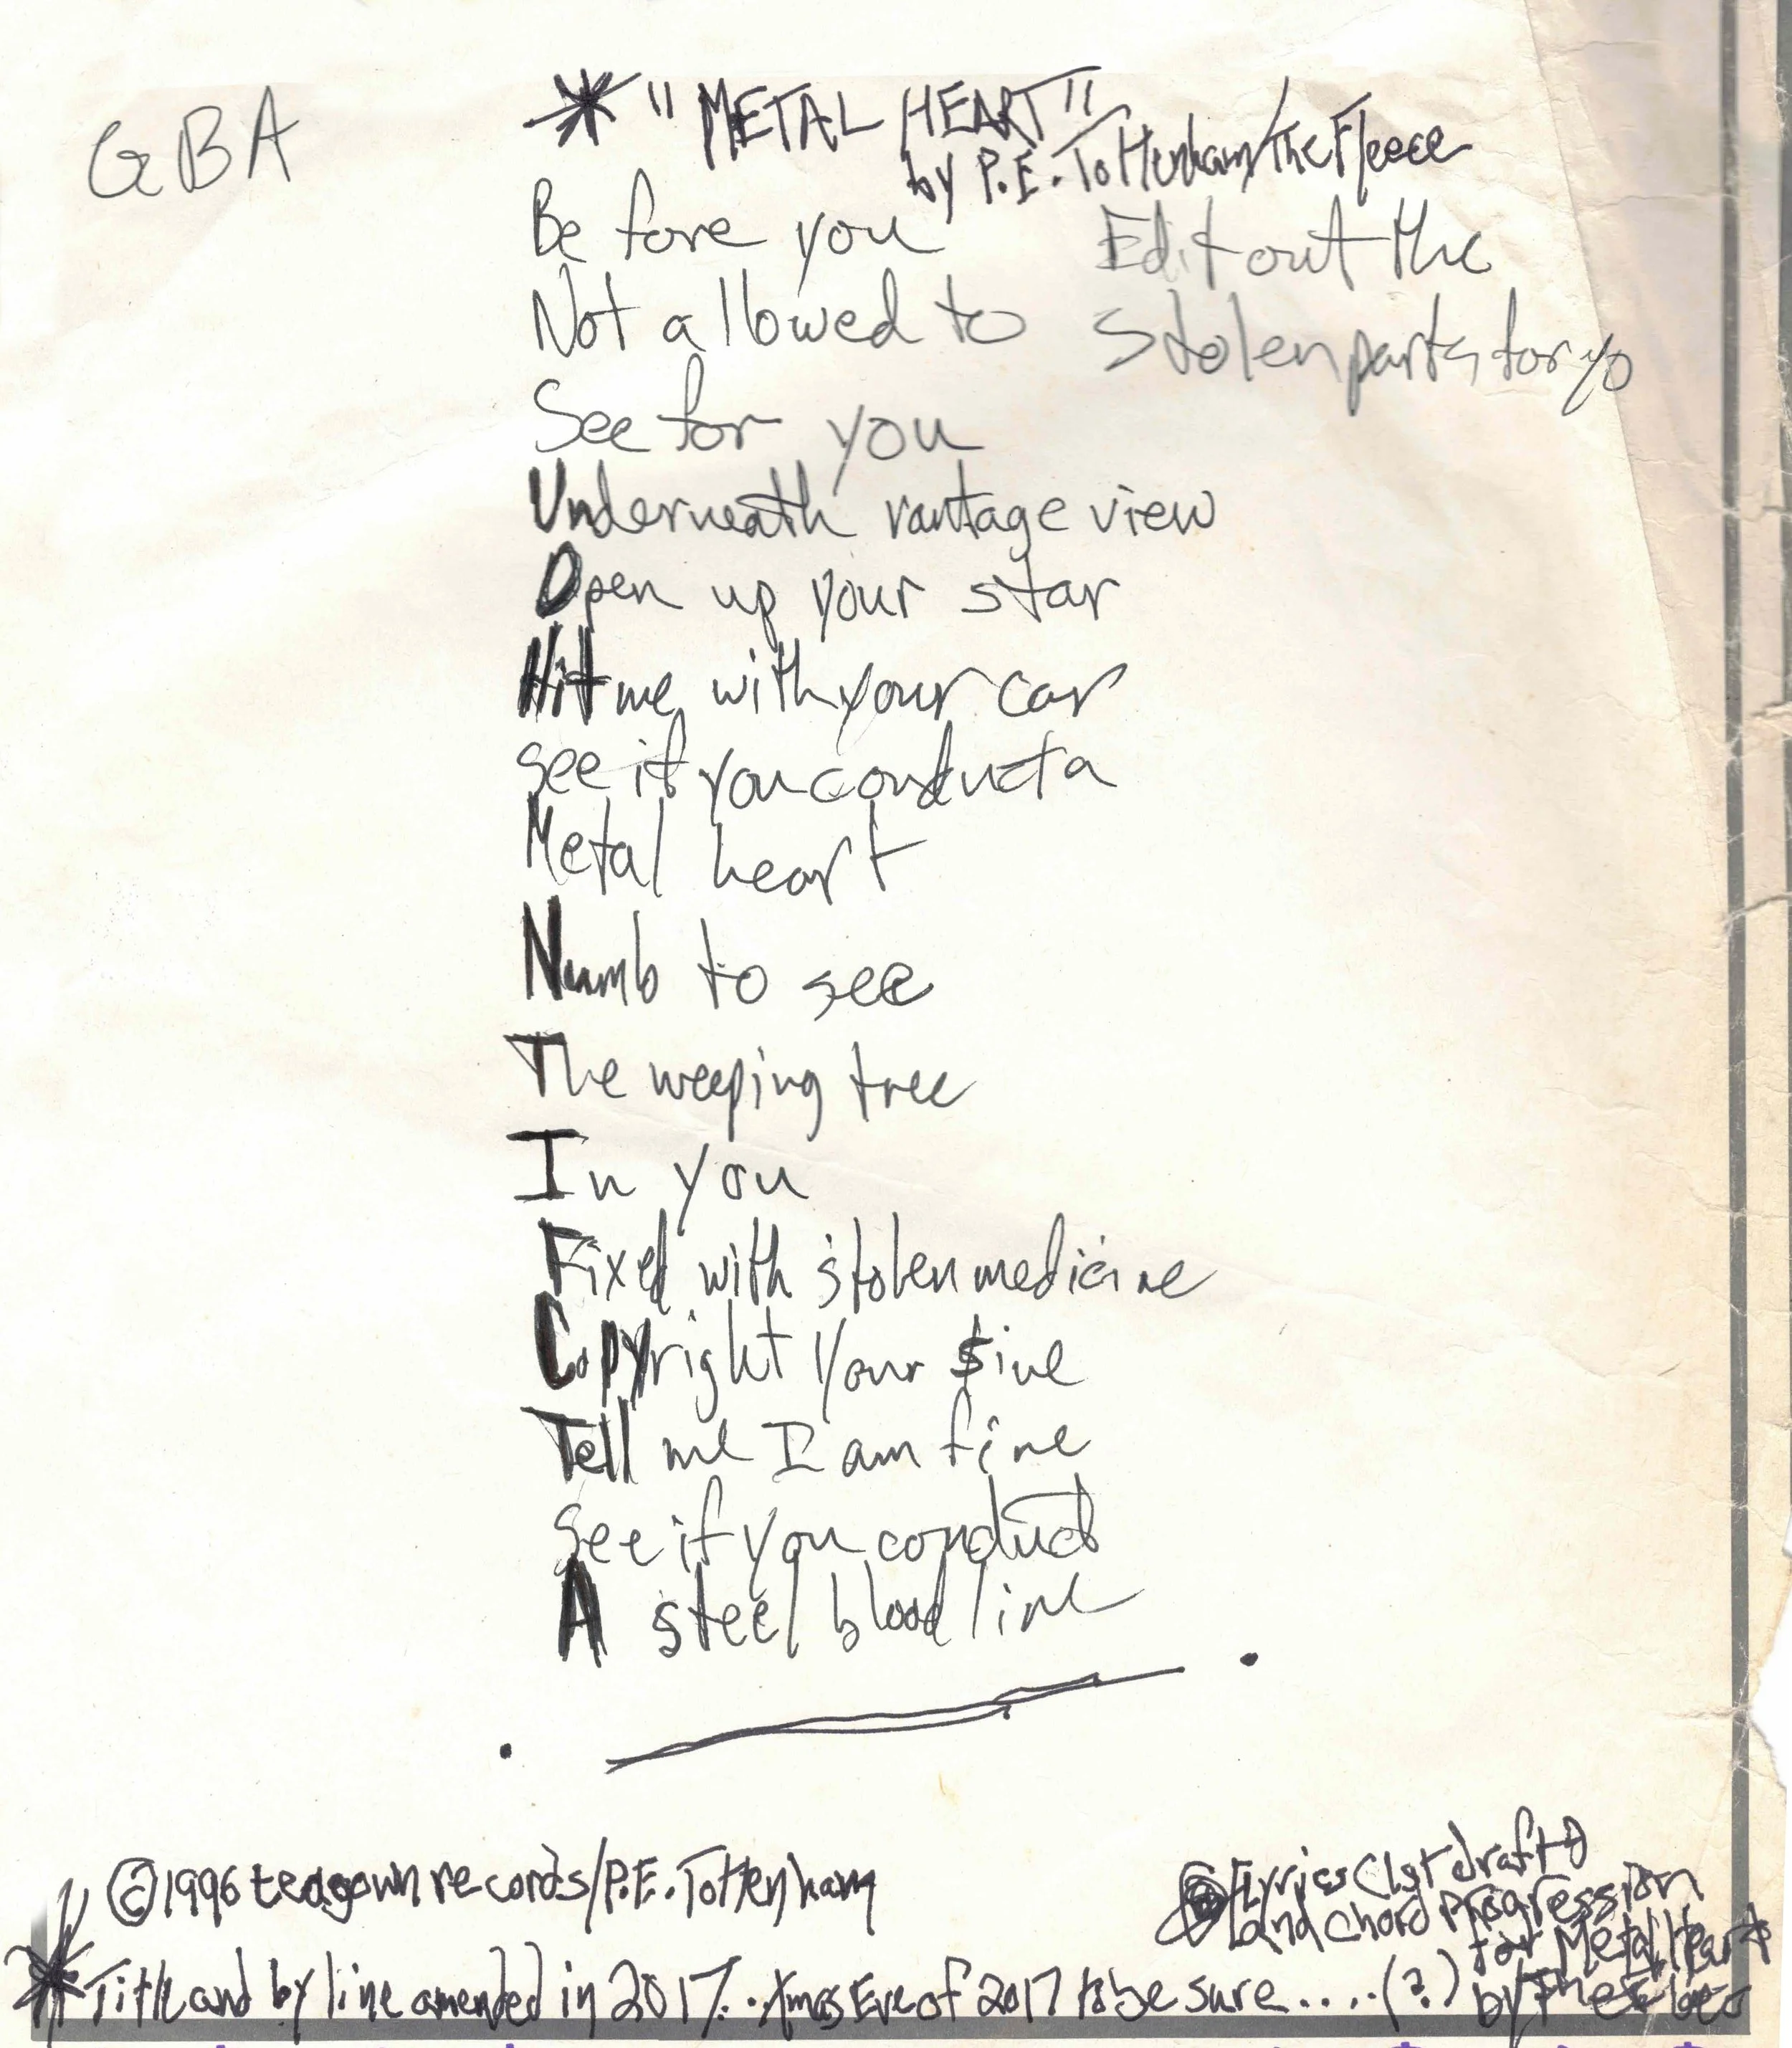 GBA
* "METAL HEART"
by P.E. Tottenham/The Fleece
Before you
Not allowed to
See for you
Edit out the
Stolen parts for yo
Underneath vantage view
Open up your star
Hit me with your car
see if you conduct a
Metal heart
Numb to see
The weeping tree
In you
Fixed with stolen medicine
Copyright your sine
Tell me I am fine
see if you conduct
A steel blood line
©1996 teagown records/P.E. Tottenham
Lyrics (1st draft)
and chord progression
for Metal Heart
by The
* Title and by line amended in 2017... Xmas Eve of 2017 to be sure....(?)